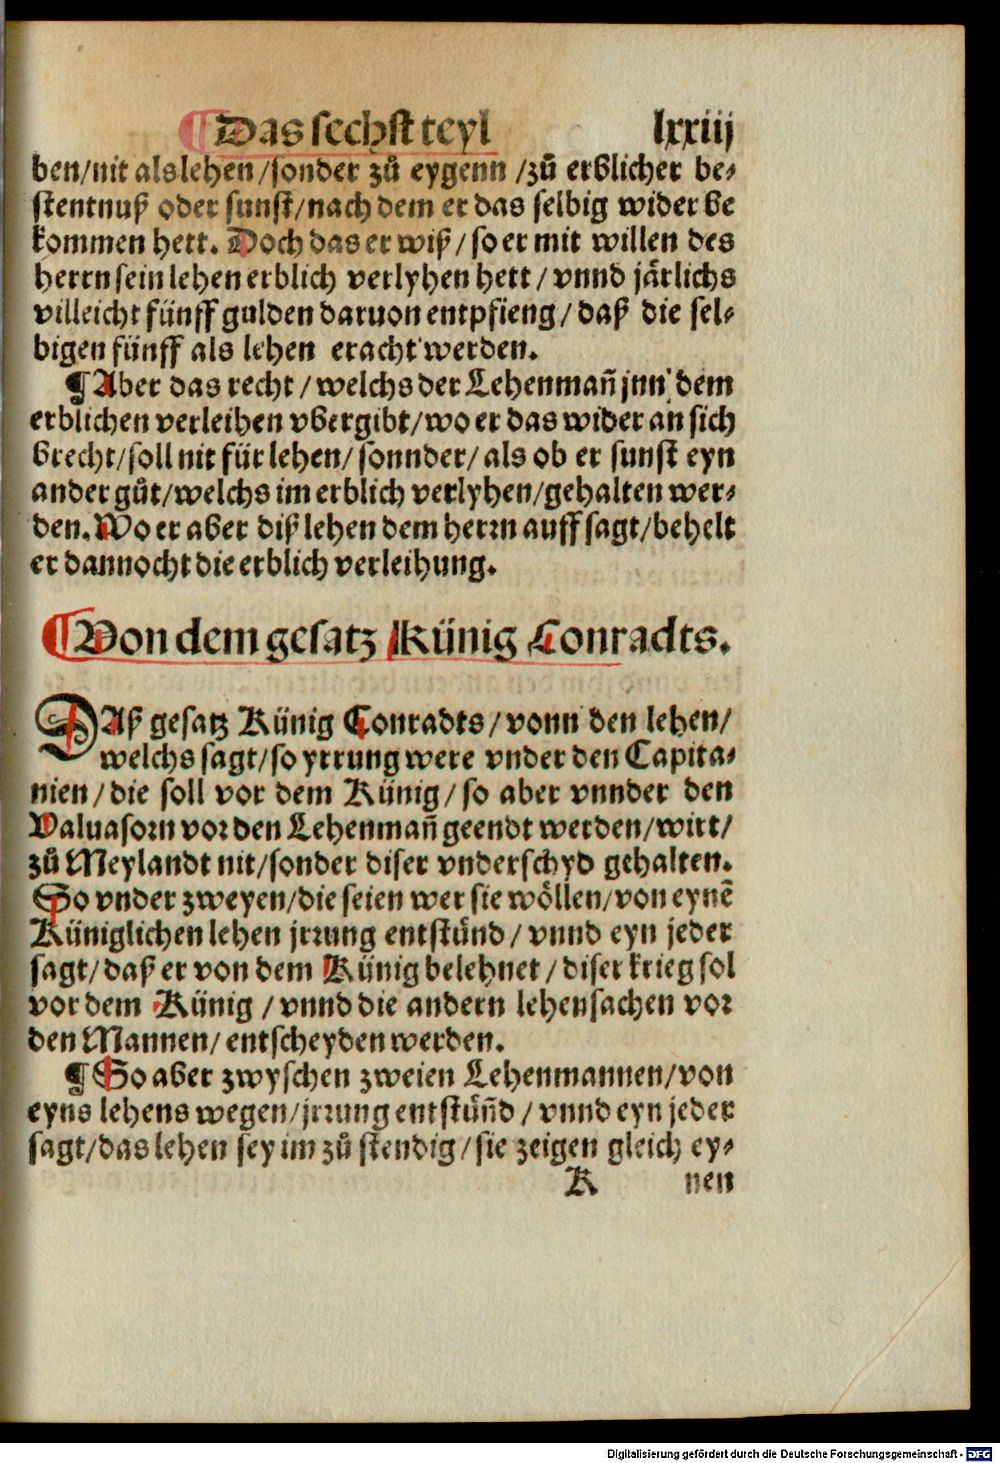 ¶ Das sechst teyl lxxiij
ben/nit als lehen/sonder zů eygenn/zů erblicher be-
stentnuß oder sunst/nach dem er das selbig wider be
kommen hett. Doch das er wiß/so er mit willen des
herrn sein lehen erblich verlyhen hett/vnnd järlichs
villeicht fünff gulden daruon entpfieng/daß die sel-
bigen fünff als lehen eracht werden.
¶ Aber das recht/welchs der Lehenman̄ jnn dem
erblichen verleihen vbergibt/wo er das wider an sich
brecht/soll nit für lehen/sonnder/als ob er sunst eyn
ander gůt/welchs im erblich verlyhen/gehalten wer-
den. Wo er aber diß lehen dem herrn auff sagt/behelt
er dannocht die erblich verleihung.
¶ Von dem gesatz Künig Conradts.
DAß gesatz Künig Conradts/vonn den lehen/
welchs sagt/so yrrung were vnder den Capita-
nien/die soll vor dem Künig/so aber vnnder den
Valuasorn vor den Lehenman̄ geendt werden/wirt/
zů Meylandt nit/sonder diser vnderschyd gehalten.
So vnder zweyen/die seien wer sie wöllen/von eynē
Küniglichen lehen jrrung entstůnd/vnnd eyn jeder
sagt/daß er von dem Künig belehnet/diser krieg sol
vor dem Künig/vnnd die andern lehensachen vor
den Mannen/entscheyden werden.
¶ So aber zwyschen zweien Lehenmannen/von
eyns lehens wegen/jrrung entstůn̄d/vnnd eyn jeder
sagt/das lehen sey im zů stendig/sie zeigen gleich ey-
K nen
Digitalisierung gefördert durch die Deutsche Forschungsgemeinschaft - DFG